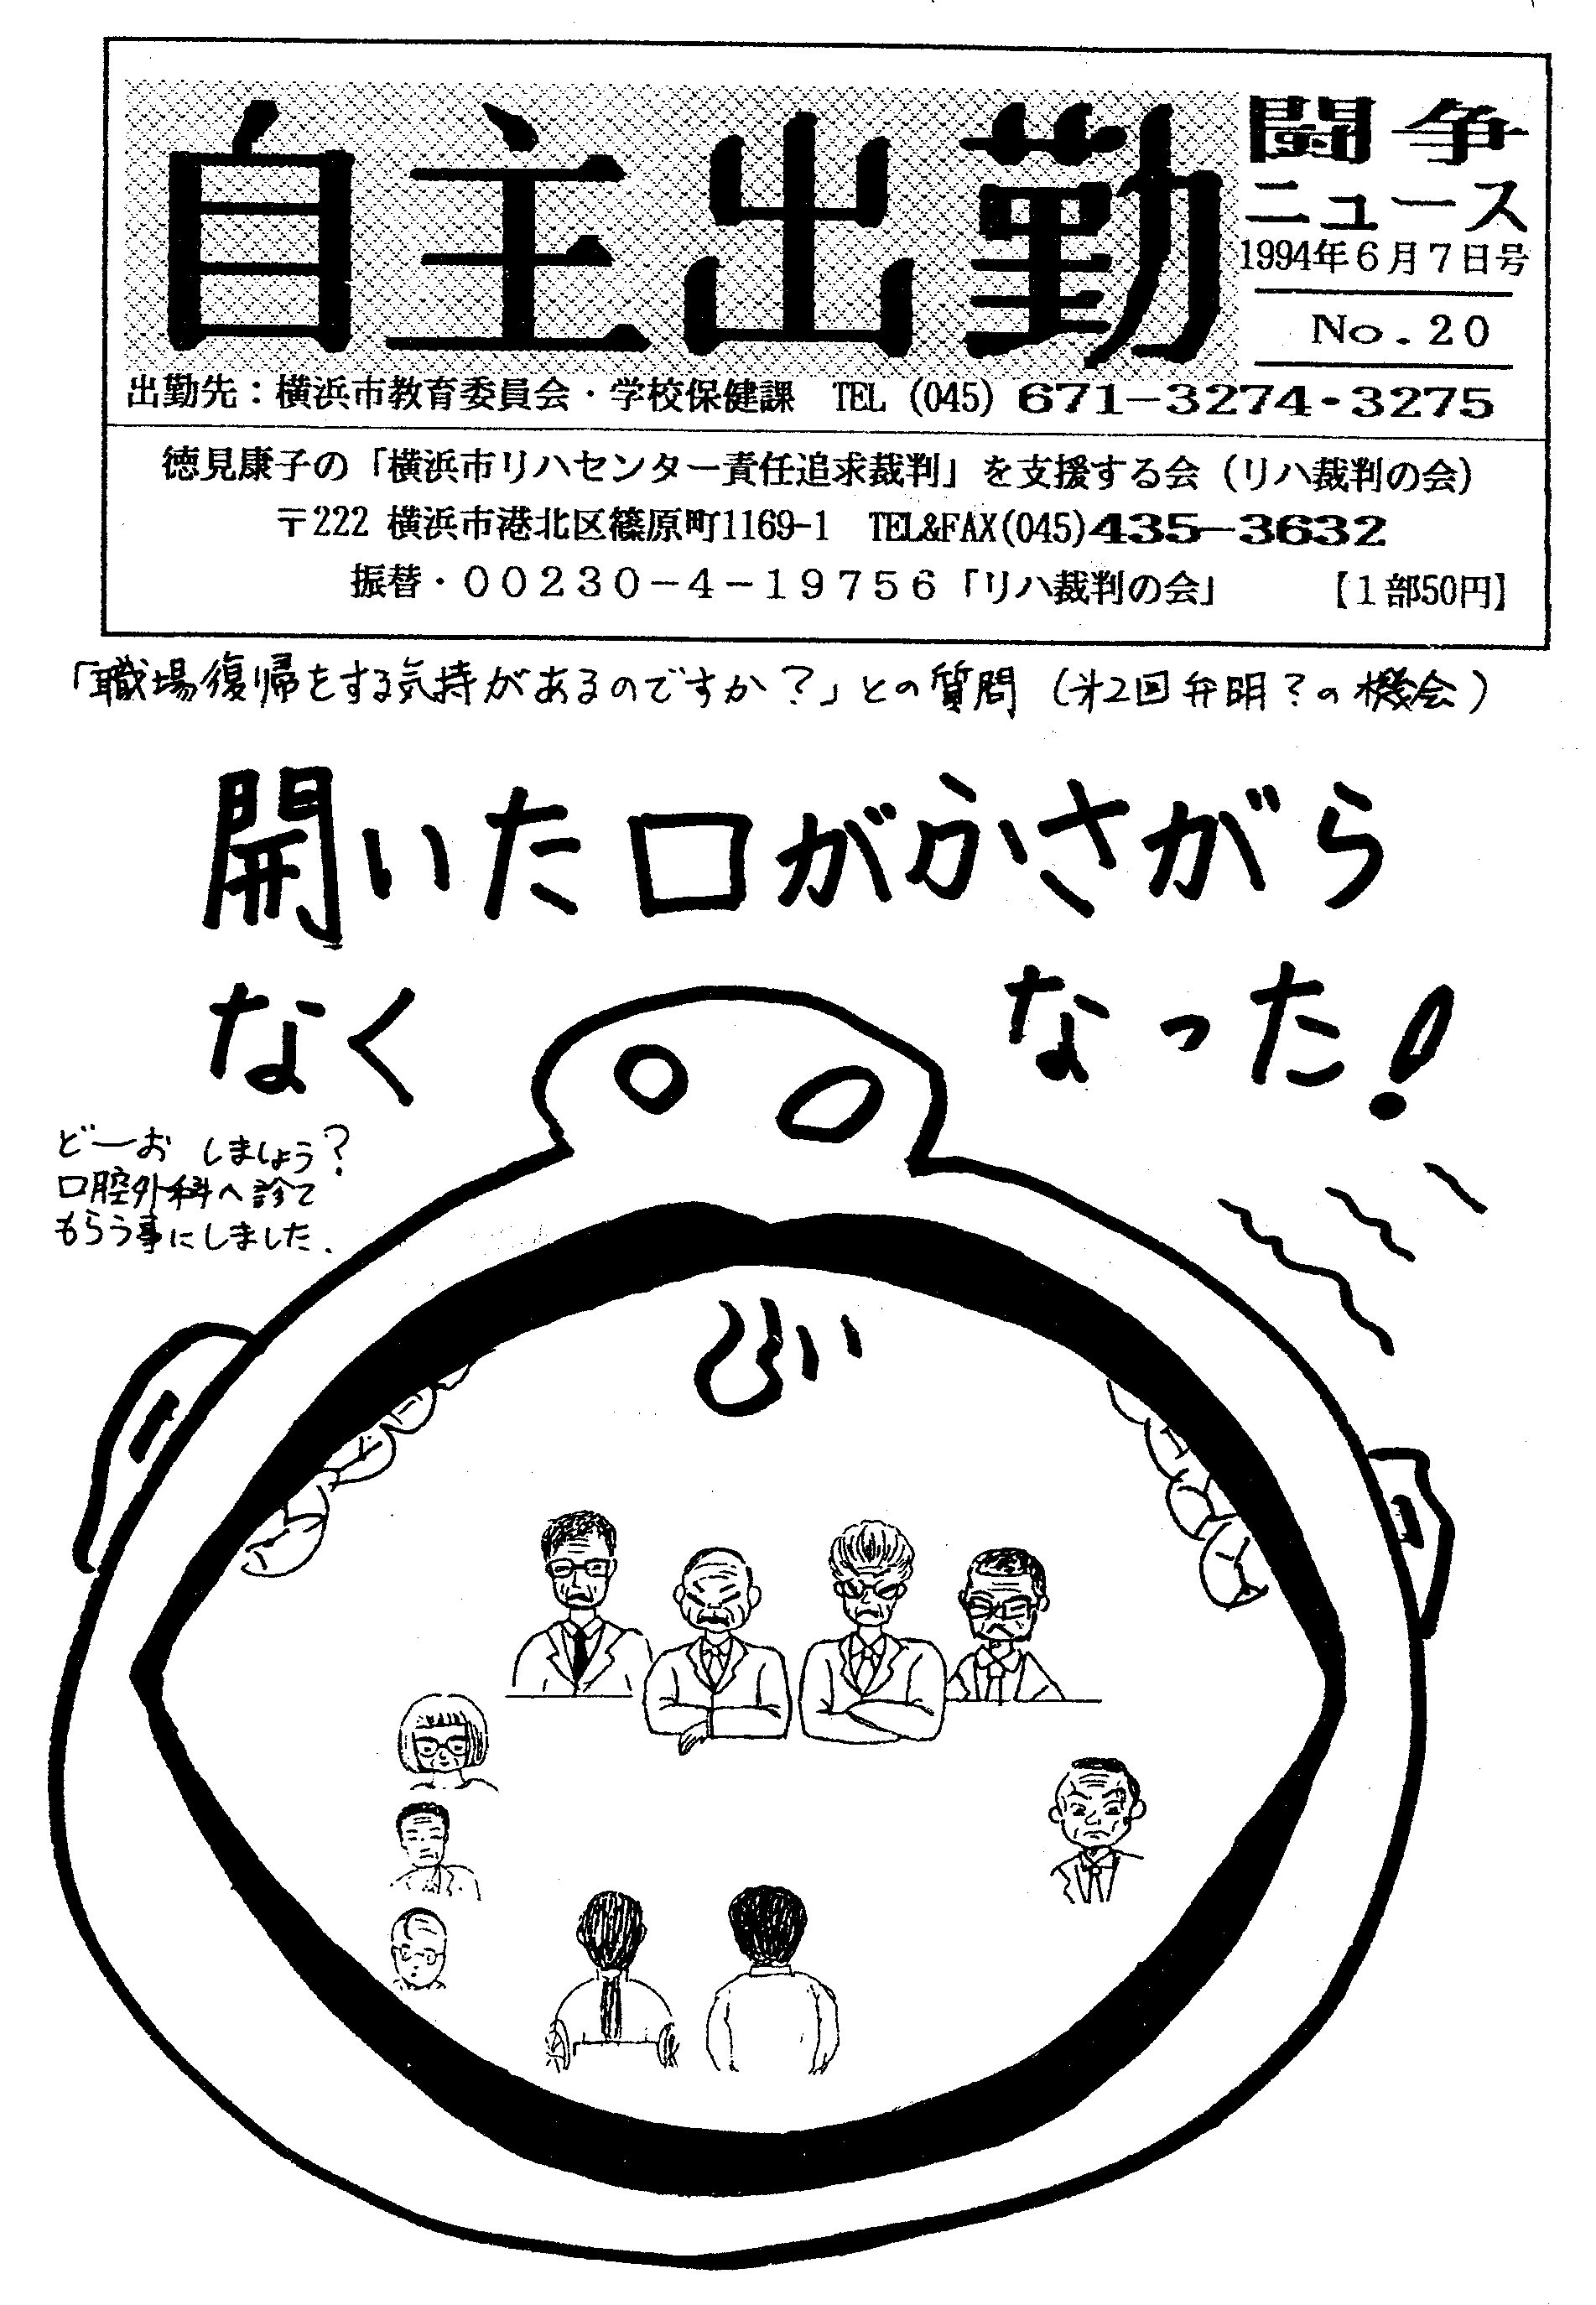 自主出勤
闘争
ニュース
1994年6月7日号
No.20
出勤先：横浜市教育委員会・学校保健課　TEL (045) 671-3274・3275
徳見康子の「横浜市リハセンター責任追求裁判」を支援する会（リハ裁判の会）
〒222 横浜市港北区篠原町1169-1　TEL&FAX(045)435-3632
振替・00230-4-19756「リハ裁判の会」　【1部50円】
「職場復帰をする気持があるのですか？」との質問（才2回弁明？の機会）
開いた口がふさがら
なく　なった！
どーお しましょう？
口腔外科へ診て
もらう事にしました.